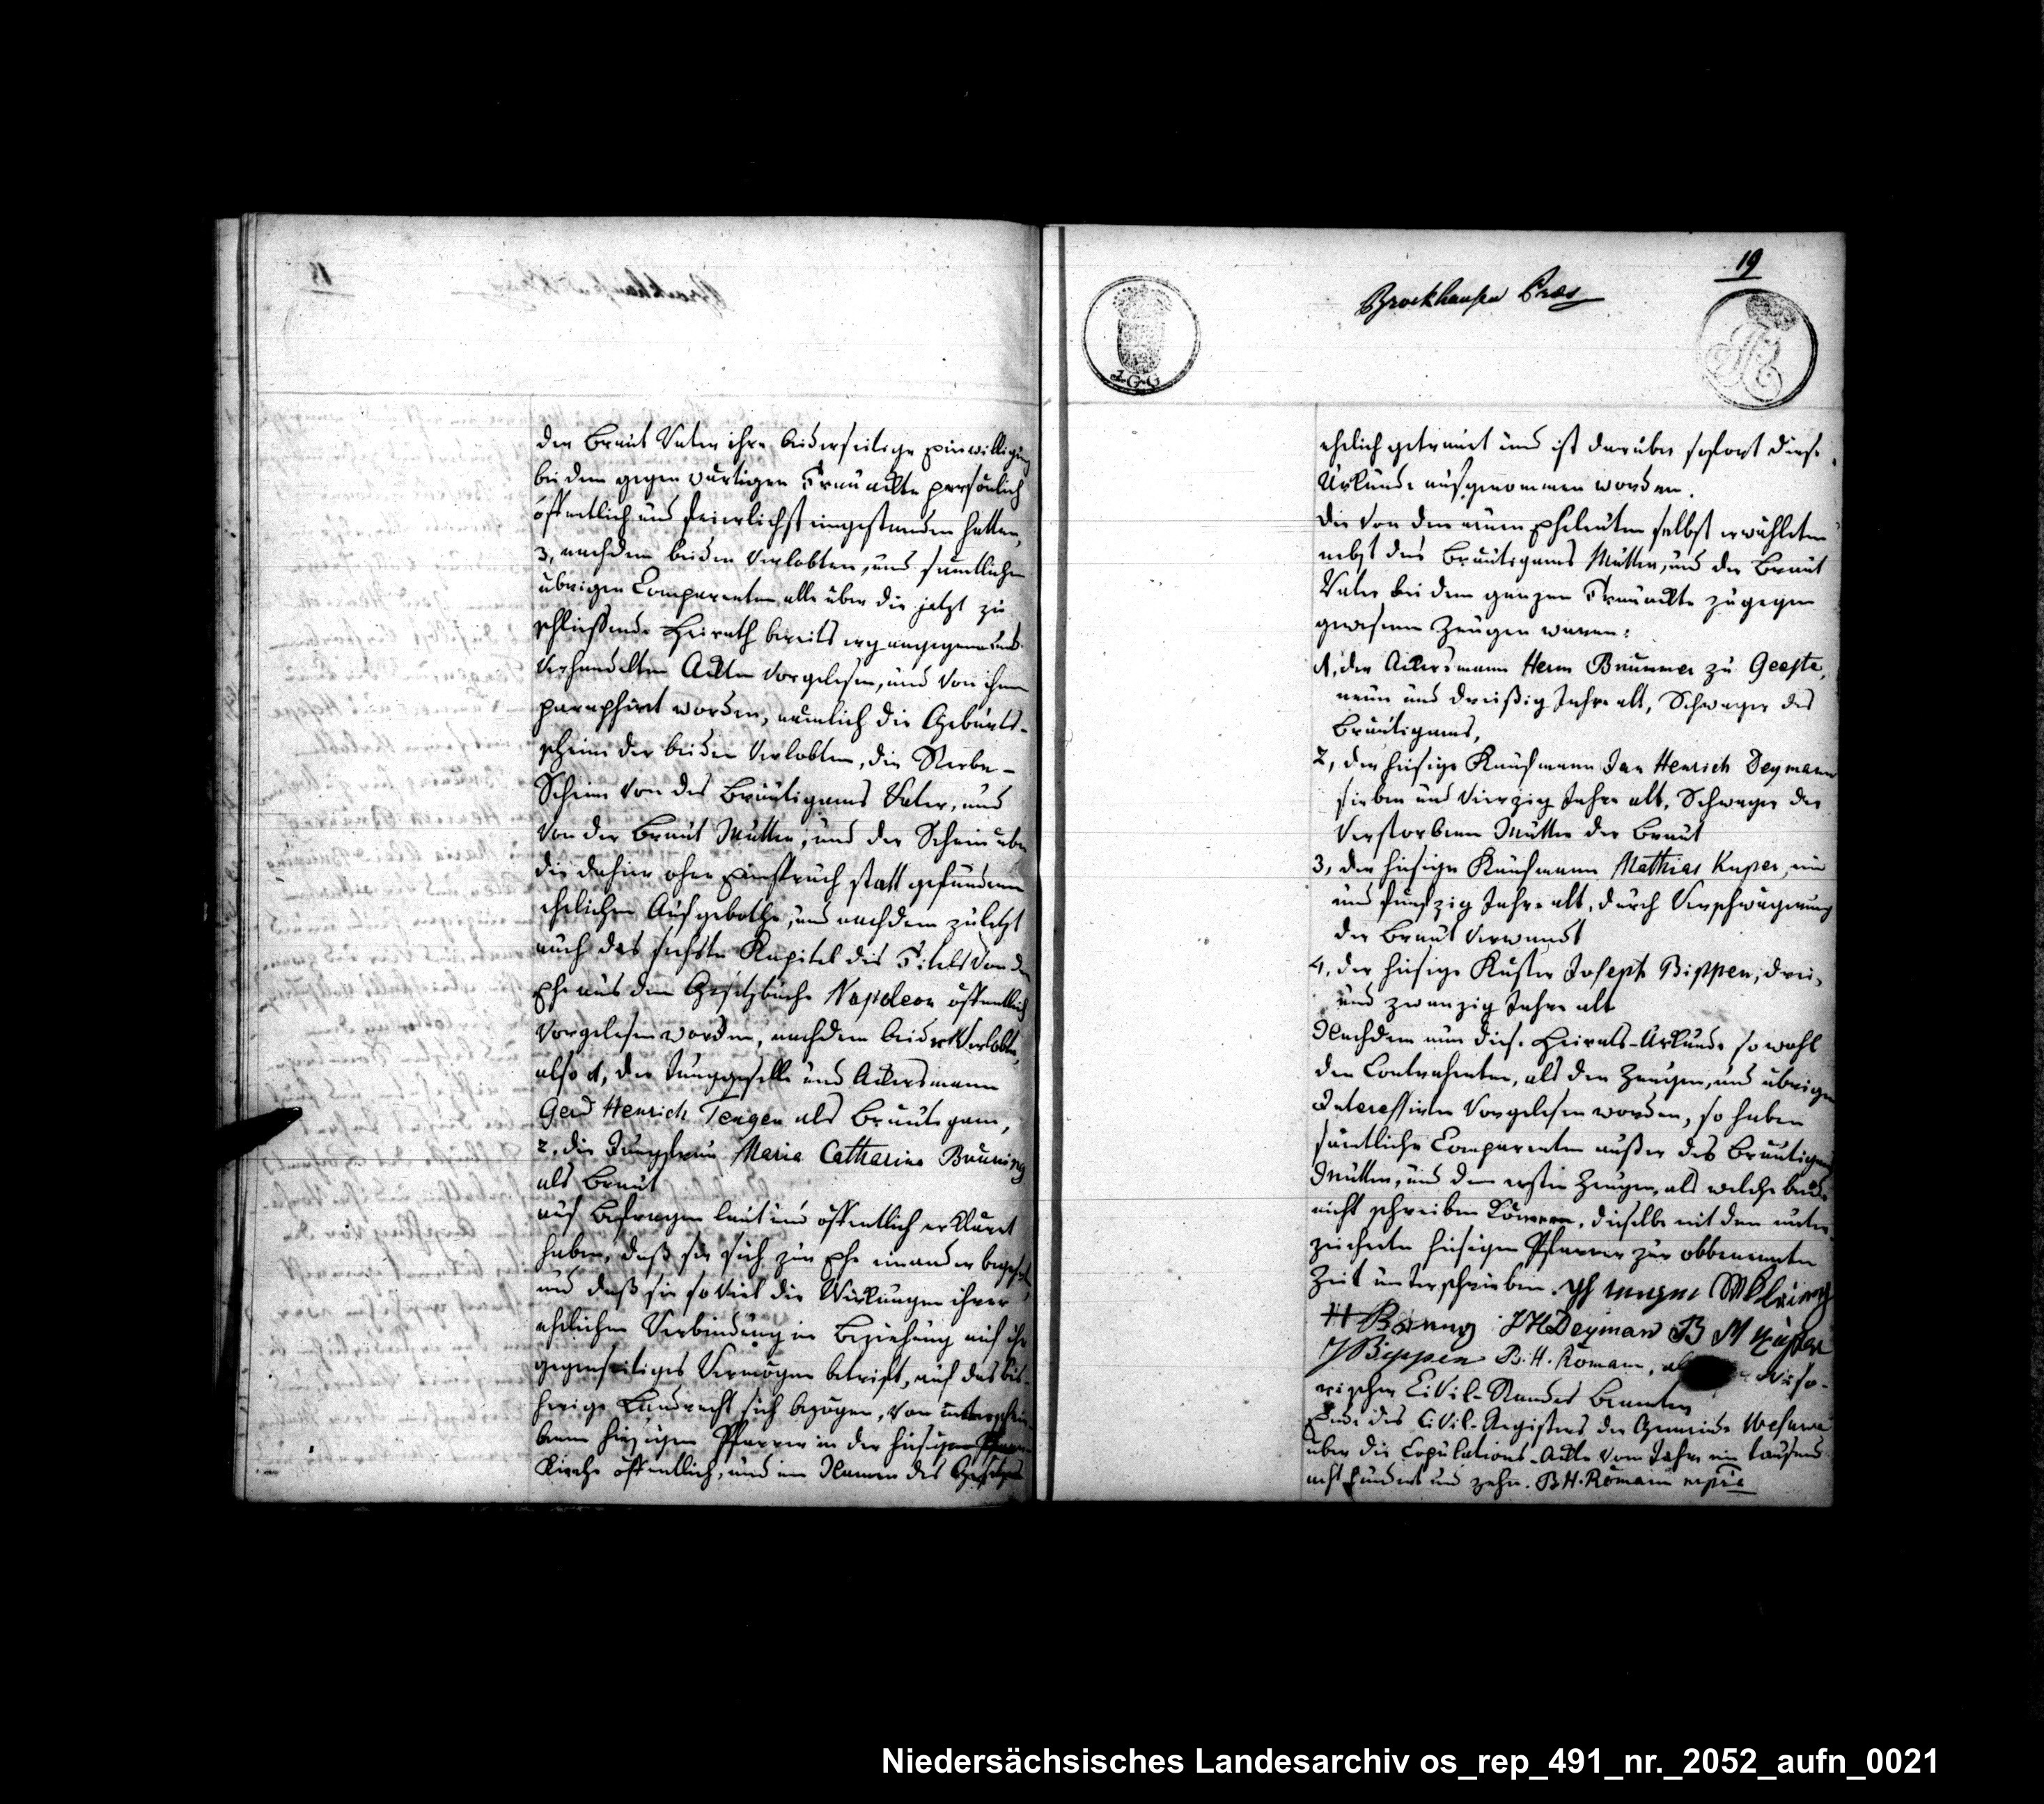 der Braut Vater ihre beiderseitige Einwilligung
bei dem gegenwärtigen Trauackte persönlich
öffentlich und feierlichst eingestanden hatten,
3, nachdem beiden Verlobten, und sämtlichen
übrigen Comparenten alle über die jetzt zu
schliessende Heirath bereits ergangenen und
verhandelten Ackten vorgelesen, und von ihnen
paraphirt worden, nämlich die Geburts-
scheine der beiden Verlobten, die Sterbe-
Scheine von des Bräutigams Vater, und
von der Braut Mutter, und der Schein über
die dahier ohne Einspruch statt gefundenen
ehelichen Aufgebothe, und nachdem zuletzt
auch das sechste Kapitel des Titels von der
Ehe aus dem Gesetzbuche Napoleon öffentlich
vorgelesen worden, nachdem beide Verlobte,
also 1, der Junggeselle und Ackersmann
Gerd Henrich Tengen als Bräutigam,
2, die Jungfrau Maria Catharina Bruning
als Braut
auf Befragen laut und öffentlich erkläret
haben, daß sie sich zur Ehe einander
und daß sie so viel die Wirkungen ihrer
ehelichen Verbindung in Beziehung auf ihr
gegenseitiges Vermögen betrift, auf das bis-
herige Landrecht sich bezögen, von
hiesigen Pfarrer in der hiesigen Pfarr-
Kirche öffentlich, und im Namen des Gesetzes
19
Brockhausen Præs
I.G.G
ehelich getrauet und ist darüber sofort diese
Urkunde aufgenommen worden.
Die von den neuen Eheleuten selbst erwählten
nebst des Bräutigams Mutter, und der Braut
Vater bei dem ganzen Trauackte zugegen
gewesenen Zeugen waren:
1, der Ackersmann Herm Brunner zu Geeste,
neun und dreißig Jahre alt, Schwager des
Bräutigams,
2, der hiesige Kaufmann Jan Henrich Deymann
sieben und vierzig Jahre alt, Schwager der
verstorbenen Mutter der Braut
3, der hiesige Kaufmann Mathias Kuper, ein
und funfzig Jahre alt, durch Verschwägerung
der Braut verwandt
4, der hiesige Küster Joseph Bippen, drei
und zwanzig Jahre alt
Nachdem nun diese Heirats-Urkunde sowohl
den Contrahenten, als den Zeugen, und übrigen
Interessirten vorgelesen worden, so haben
sämtliche Comparenten außer des Bräutigams
Mutter, und dem ersten Zeugen, als welche beide
nicht schreiben können, dieselbe mit dem unter-
zeichneten hiesigen Pfarrer zur obbenannten
Zeit unterschrieben.
JHDeyman
JBippen B.H. Römann, als
rischer Civil-Standes Beamten
Ende des Civil-Registers der Gemeinde Wesuwe
über die Copulations-Ackte vom Jahre ein tausend
acht hundert und zehn. BH. Römann mpria
Niedersächsisches Landesarchiv os_rep_491_nr._2052_aufn_0021